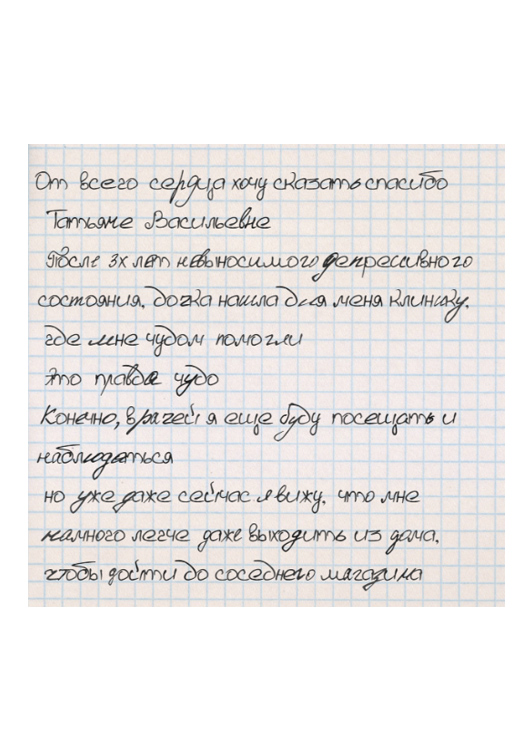 От всего сердца хочу сказать спасибо
Татьяне Васильевне
После 3х лет невыносимого депрессивного
состояния, дочка нашла для меня клинику,
где мне чудом помогли
Это правда чудо
Конечно, врачей я еще буду посещать и
наблюдаться
но уже даже сейчас я вижу, что мне
намного легче даже выходить из дома,
чтобы дойти до соседнего магазина